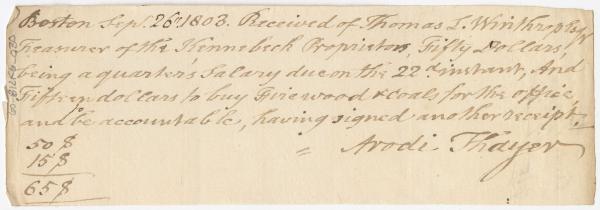 Boston Sept. 26th 1803. Received of Thomas L. Winthrop Esqr
Treasurer of the Kennebeck Proprietors, Fifty Dollars
being a quarter's Salary due on the 22d instant, And
Fifteen dollars to buy Firewood & Coals for the office
and be accountable, having signed another receipt.
50 $
15 $
65 $
= Arodi Thayer